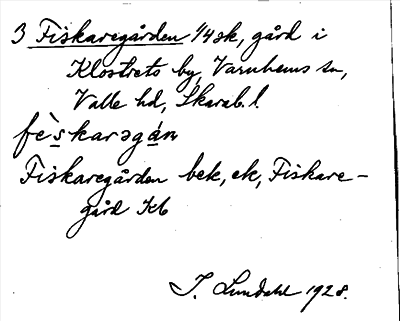 3 Fiskaregården 1/4 sk, gård i
Klostrets by, Varnhems sn,
Valle hd, Skarab. l.
fè`skarəgán
Fiskaregården bek, ek, Fiskare-
gård Kb
I. Lundahl 1928.